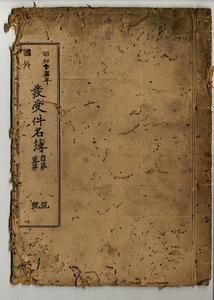 昭和十五年
國外
發受件名簿
自第
至第
號
號